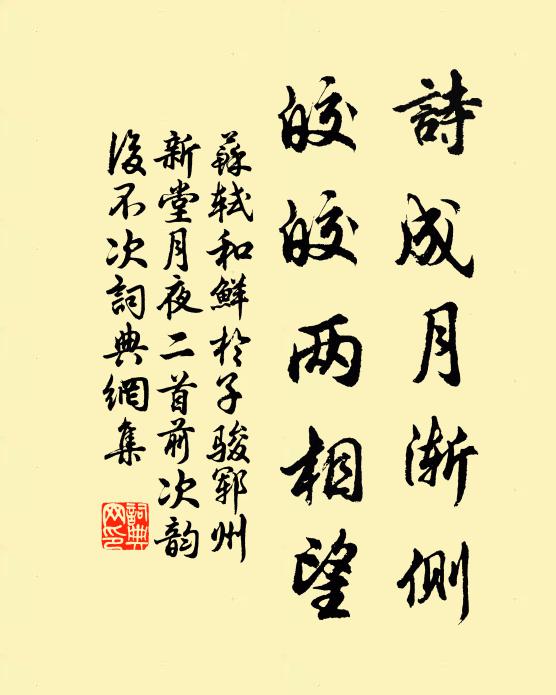 詩成月漸側
皎皎兩相望
蘇軾和鮮於子駿鄆州
新堂月夜二首前次韵
後不次詞典網集
詞典网印